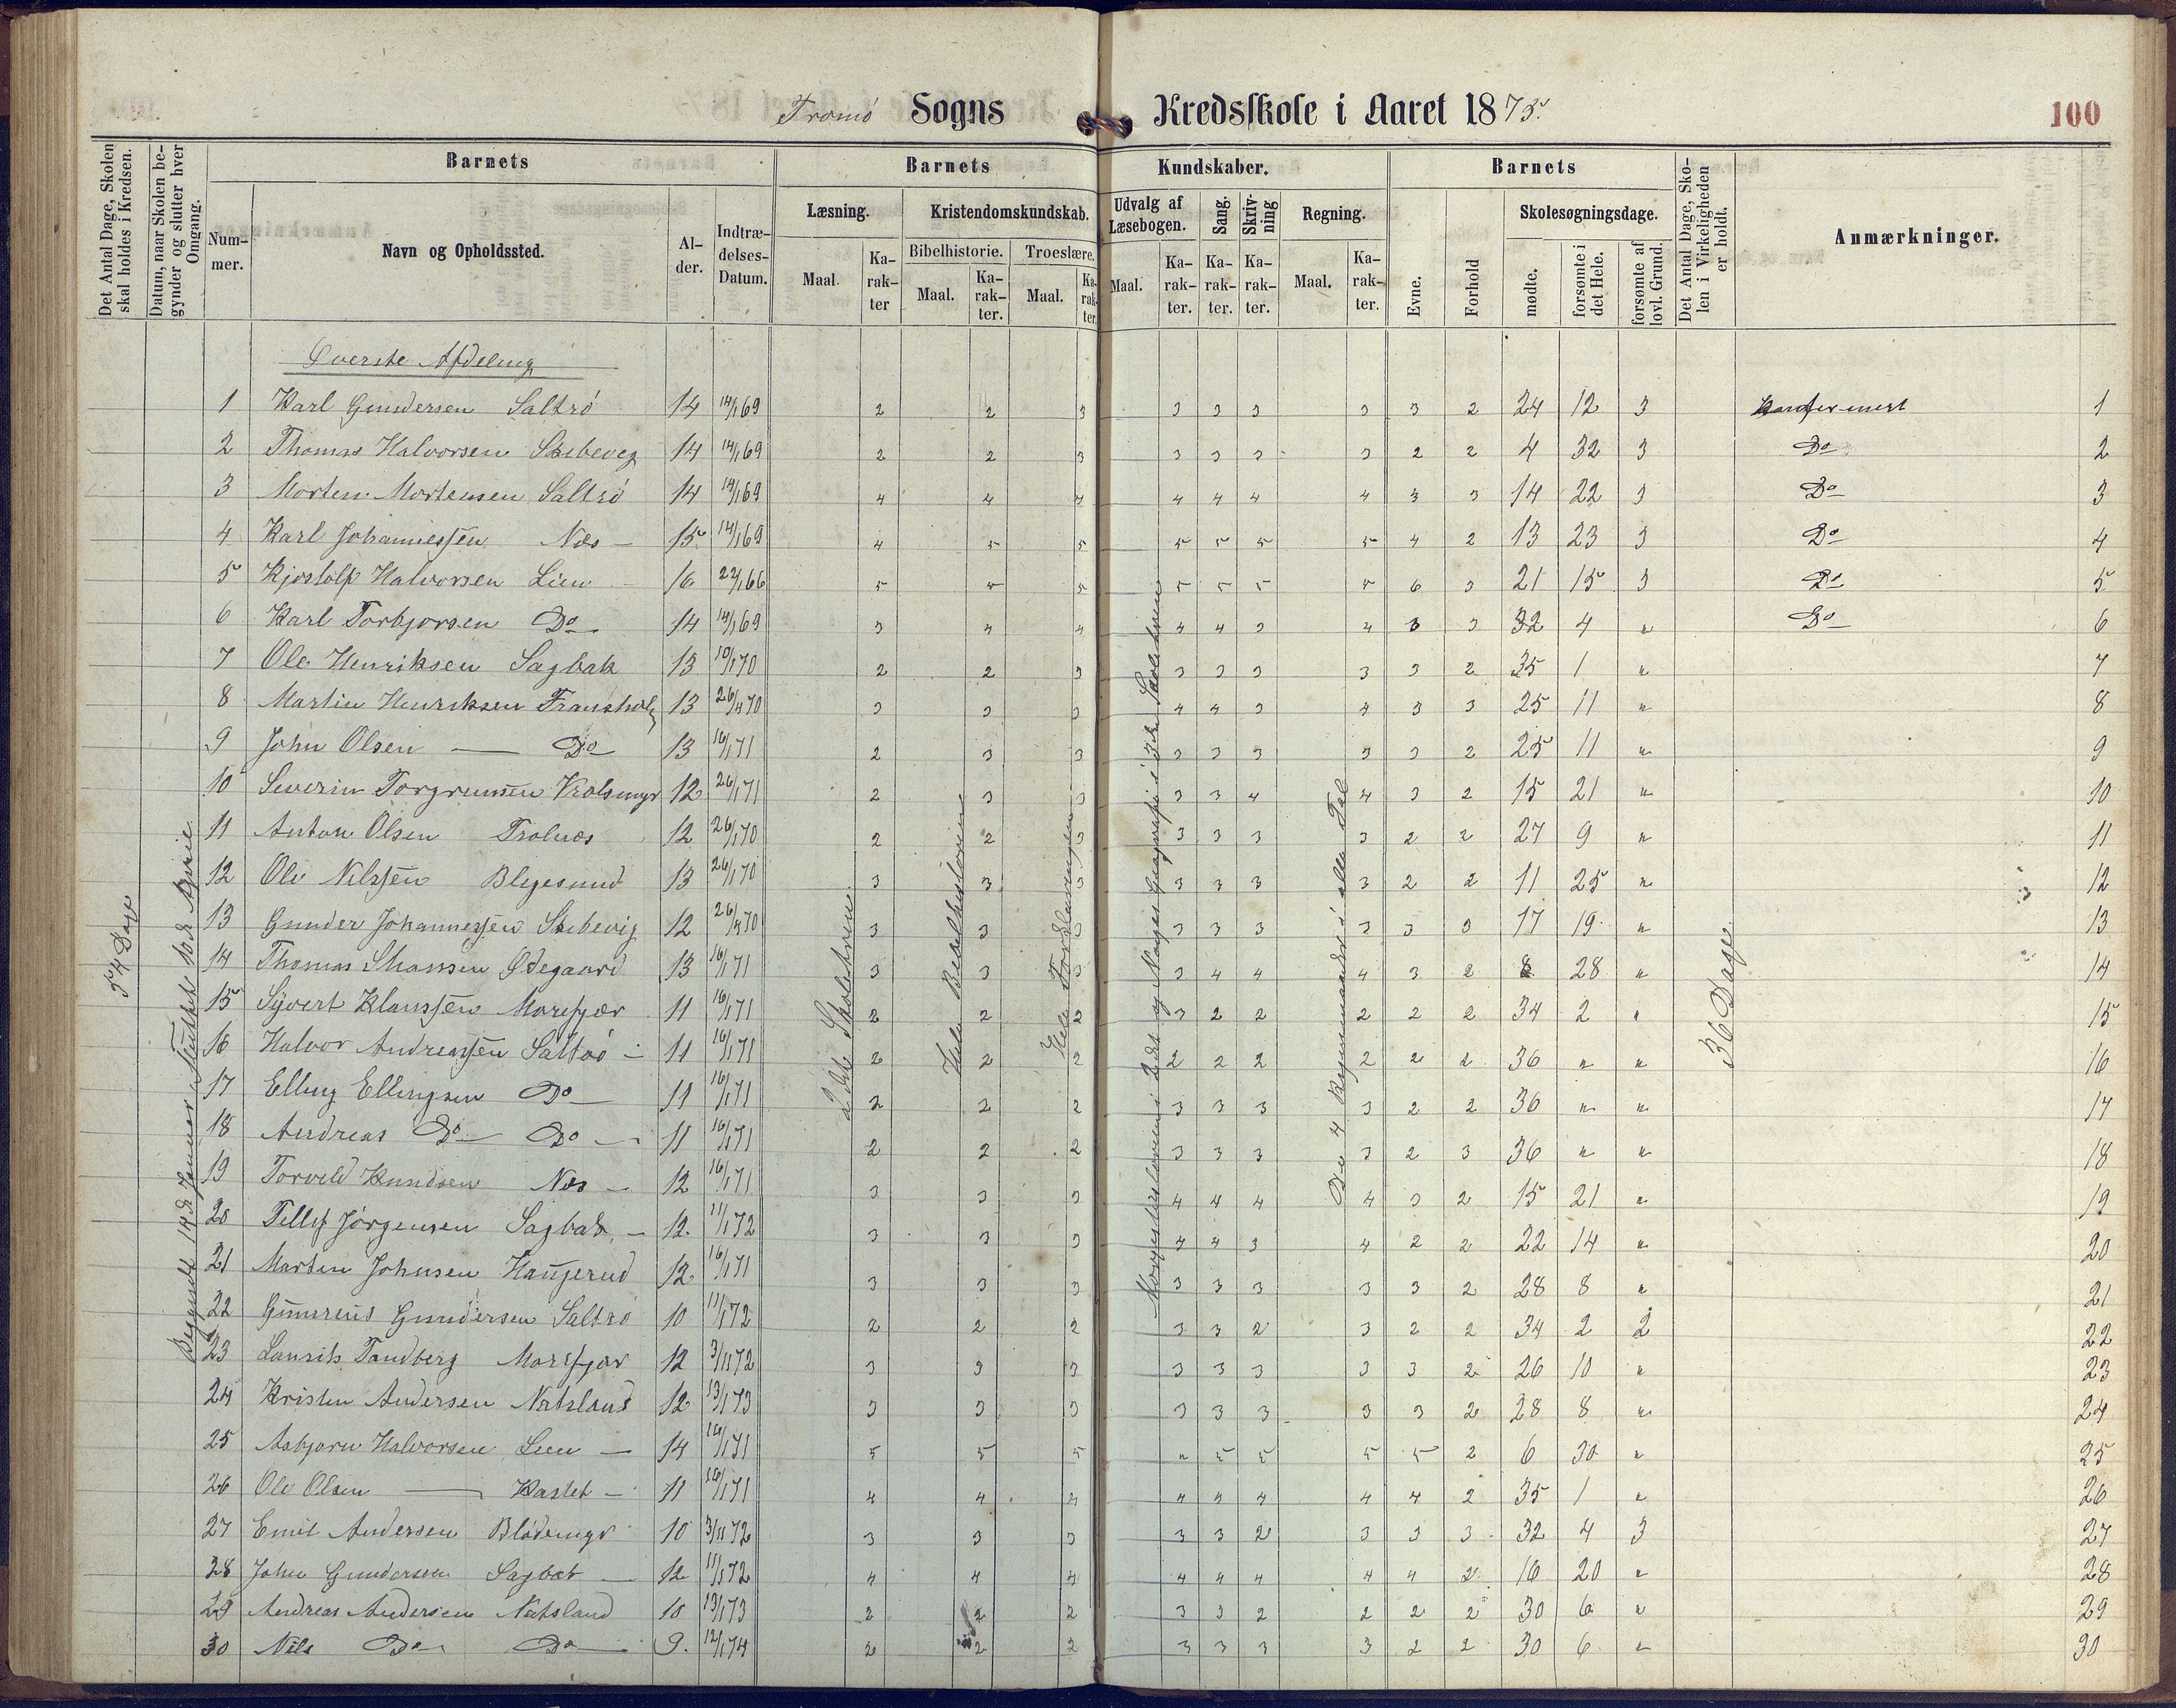 Tromö Sogns Kredsskole i Aaret 1875. 100
Det Antal Dage, Skolen skal holdes i Kredsen.
Datum, naar Skolen begynder og slutter hver Omgang.
Barnets Barnets Kundskaber. Barnets
Det Antal Dage, Skolen i Virkeligheden er holdt.
Anmærkninger.
Nummer. Navn og Opholdssted. Alder. Indtrædelses-Datum.
Læsning. Kristendomskundskab. Udvalg af Læsebogen. Sang. Skrivning Regning. Evne. Forhold Skolesøgningsdage.
Bibelhistorie. Troeslære.
Maal. Karakter Maal. Karakter. Maal. Karakter. Maal. Karakter. Karakter. Karakter. Maal. Karakter. mødte. forsømte i det Hele. forsømte af lovl. Grund.
Överste Afdeling
1 Karl Gundersen Saltrö 14 14/1 69 2 2 3 3 3 3 3 3 2 24 12 3 Konfermert 1
2 Thomas Halvorsen Skibevig 14 14/1 69 2 2 3 3 3 3 3 2 2 4 32 3 Do 2
3 Morten Mortensen Saltrö 14 14/1 69 4 4 4 4 4 4 4 3 3 14 22 3 Do 3
4 Karl Johannessen Næs 15 14/1 69 4 5 5 5 5 5 5 4 2 13 23 3 Do 4
5 Kjostolf Halvorsen Lien 16 22/1 66 5 5 5 5 5 5 5 6 3 21 15 3 Do 5
6 Karl Torbjorsen Do 14 14/1 69 3 4 4 4 4 3 4 3 3 32 4 " Do 6
7 Ole Henriksen Sagbak 13 10/1 70 2 2 3 3 3 3 3 3 2 35 1 " 7
8 Martin Henriksen 13 26/4 70 3 3 3 4 4 3 4 3 3 25 11 " 8
9 John Olsen — Do 13 16/1 71 2 3 3 3 3 3 3 3 2 25 11 " 9
10 Severin Torgrimsen 12 26/1 71 2 3 3 3 3 4 4 3 2 15 21 " 10
11 Anton Olsen Trolnæs 12 26/1 70 2 2 3 3 3 3 3 2 2 27 9 " 11
12 Ole Nilssen Blegesund 13 26/1 70 3 3 3 3 3 3 3 2 2 11 25 " 12
13 Gunder Johannessen Skibevig 12 26/4 70 3 3 3 3 3 3 3 3 3 17 19 " 13
14 Thomas Ødegaard 13 16/1 71 3 3 3 3 4 4 4 3 2 8 28 " 14
15 Syvert Klaussen Morefjær 11 16/1 71 2 2 2 3 2 2 2 2 2 34 2 " 15
16 Halvor Andreassen Saltrö 11 16/1 71 2 2 2 2 2 2 2 2 2 36 " " 16
17 Elling Ellingsen Do 11 16/1 71 2 2 2 3 3 3 3 2 2 36 " " 17
18 Andreas Do Do 11 16/1 71 2 2 2 3 3 3 3 2 3 36 " " 18
19 Torvild Knudsen Næs 12 16/1 71 3 3 3 4 4 4 4 3 2 15 21 " 19
20 Tellef Jörgensen Sagbak 12. 11/1 72 3 3 3 4 4 3 4 2 2 22 14 " 20
21 Martin Johnsen Haugerud 12 16/1 71 3 3 3 3 3 3 3 3 2 28 8 " 21
22 Gunerius Gundersen Saltrö 10 11/1 72 2 2 2 3 3 2 3 2 2 34 2 2 22
23 Laurits Tandberg Morefjær 12 3/11 72 3 3 3 3 3 3 3 3 2 26 10 " 23
24 Kristen Andersen Natsland 12 13/1 73 3 3 3 3 3 3 3 3 2 28 8 " 24
25 Asbjorn Halvorsen Lien 14 16/1 71 5 5 5 " 5 5 5 5 2 6 30 " 25
26 Ole Olsen — Kastet 11 16/1 71 4 4 4 4 4 4 4 4 2 35 1 " 26
27 Emil Andersen Blödemyr 10 3/11 72 3 3 3 3 3 2 3 3 3 32 4 3 27
28 John Gundersen Sagbak 12 11/1 72 4 4 4 4 4 4 4 4 2 16 20 " 28
29 Andreas Andersen Natsland 10 13/1 73 2 2 2 3 3 2 2 2 2 30 6 " 29
30 Nils Do Do 9. 12/1 74 2 2 2 3 3 3 3 2 2 30 6 " 30
54 Dage
Begyndte 14de Januar Sluttet 10de
2det Skoletrin.
Hele Bibelhistorien
Hele Forklaringen
Norgeshistorien i 2det og Norges Geografi i 3die Skoletrin
De 4 Regningsarter i alle Tal
36 Dage.